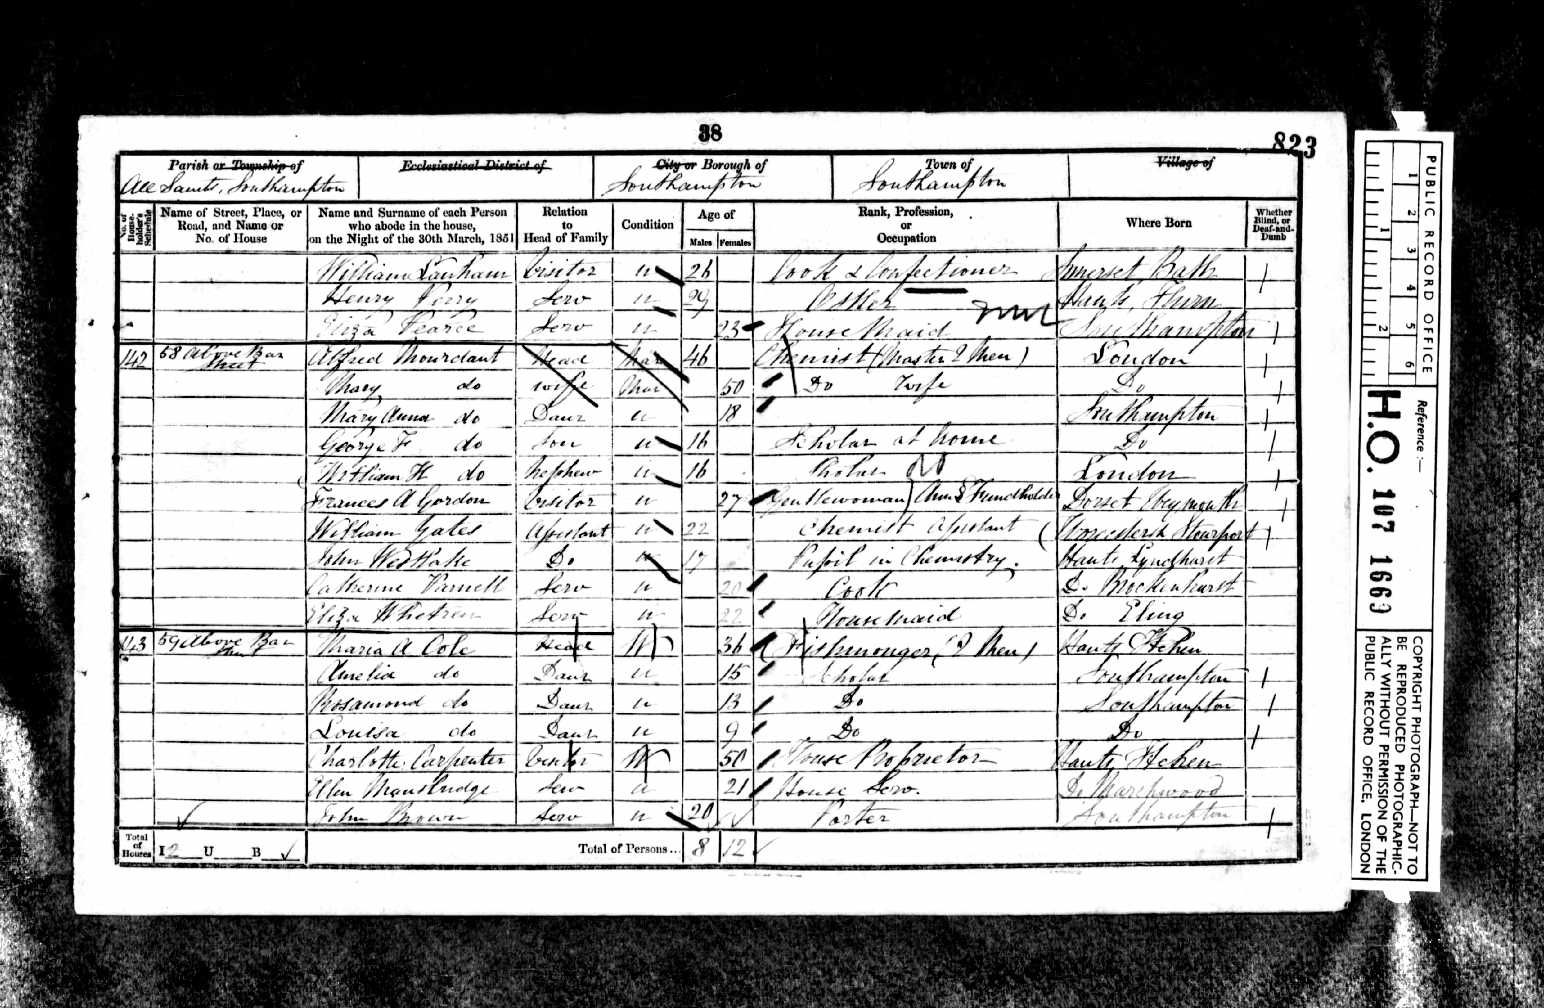 38
823
Parish or Township of
Ecclesiastical District of
City or Borough of
Town of
Village of
All Saints, Southampton
Southampton
Southampton
No. of House-holder's Schedule
Name of Street, Place, or Road, and Name or No. of House
Name and Surname of each Person who abode in the house, on the Night of the 30th March, 1851
Relation to Head of Family
Condition
Age of
Males Females
Rank, Profession, or Occupation
Where Born
Whether Blind, or Deaf-and-Dumb
William Lanham Visitor U 26 Cook & Confectioner Somerset Bath
Henry Perry Serv U 29 Ostler Hants,
Eliza Pearce Serv U 23 House Maid Southampton
142 58 Above Bar Street Alfred Mourdant Head Mar 46 Chemist (Master 2 Men) London
Mary do Wife Mar 50 Do Wife Do
Mary Anna do Daur U 18 Southampton
George F do Son U 16 Scholar at home Do
William H do Nephew U 16 Scholar London
Frances A Gordon Visitor U 27 Gentlewoman Fundholder Dorset Weymouth
William Yates Assistant U 22 Chemist Assistant Worcestersh Stourport
John Westlake Do U 17 Pupil in Chemistry. Hants Lyndhurst
Catherine Parnell Serv U 20 Cook Do Brockenhurst
Eliza Serv U 22 House maid Do Eling
143 59 Above Bar Street Maria A Cole Head W 36 Fishmonger, (2 Men) Hants Itchen
Amelia do Daur U 15 Scholar Southampton
Rosamond do Daur U 13 Do Southampton
Louisa do Daur U 9 Do Do
Charlotte Carpenter Visitor W 50 House Proprietor Hants Itchen
Ellen Mansbridge Serv U 21 House Serv. Do Marchwood
John Brown Serv U 20 Porter Southampton
Total of Houses I 2 U B Total of Persons... 8 12
PUBLIC RECORD OFFICE
1 2 3 4 5 6
1 2
Reference :—
H.O. 107 1669
COPYRIGHT PHOTOGRAPH—NOT TO
BE REPRODUCED PHOTOGRAPHIC-
ALLY WITHOUT PERMISSION OF THE
PUBLIC RECORD OFFICE, LONDON